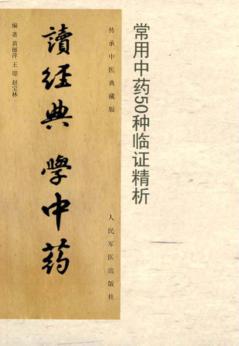 常用中药50种临证精析
传承中医典藏版
讀經典 學中药
编著 苗丽萍 王璟 赵宝林
人民军医出版社